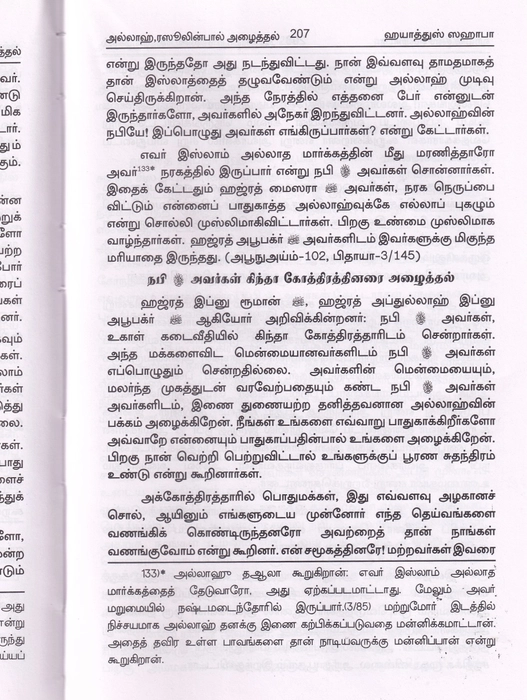 அல்லாஹ்,ரஸூலின்பால் அழைத்தல் 207 ஹயாத்துஸ் ஸஹாபா
என்று இருந்ததோ அது நடந்துவிட்டது. நான் இவ்வளவு தாமதமாகத்
தான் இஸ்லாத்தைத் தழுவவேண்டும் என்று அல்லாஹ் முடிவு
செய்திருக்கிறான். அந்த நேரத்தில் எத்தனை பேர் என்னுடன்
இருந்தார்களோ, அவர்களில் அநேகர் இறந்துவிட்டனர். அல்லாஹ்வின்
நபியே! இப்பொழுது அவர்கள் எங்கிருப்பார்கள்? என்று கேட்டார்கள்.
எவர் இஸ்லாம் அல்லாத மார்க்கத்தின் மீது மரணித்தாரோ
அவர்133* நரகத்தில் இருப்பார் என்று நபி ﷺ அவர்கள் சொன்னார்கள்.
இதைக் கேட்டதும் ஹஜ்ரத் மைஸரா அவர்கள், நரக நெருப்பை
விட்டும் என்னைப் பாதுகாத்த அல்லாஹ்வுக்கே எல்லாப் புகழும்
என்று சொல்லி முஸ்லிமாகிவிட்டார்கள். பிறகு உண்மை முஸ்லிமாக
வாழ்ந்தார்கள். ஹஜ்ரத் அபூபக்ர் அவர்களிடம் இவர்களுக்கு மிகுந்த
மரியாதை இருந்தது. (அபூநுஅய்ம்-102, பிதாயா-3/145)
நபி ﷺ அவர்கள் கிந்தா கோத்திரத்தினரை அழைத்தல்
ஹஜ்ரத் இப்னு ரூமான் , ஹஜ்ரத் அப்துல்லாஹ் இப்னு
அபூபக்ர் ஆகியோர் அறிவிக்கின்றனர்: நபி ﷺ அவர்கள்,
உகாள் கடைவீதியில் கிந்தா கோத்திரத்தாரிடம் சென்றார்கள்.
அந்த மக்களைவிட மென்மையானவர்களிடம் நபி ﷺ அவர்கள்
எப்பொழுதும் சென்றதில்லை. அவர்களின் மென்மையையும்,
மலர்ந்த முகத்துடன் வரவேற்பதையும் கண்ட நபி ﷺ அவர்கள்
அவர்களிடம், இணை துணையற்ற தனித்தவனான அல்லாஹ்வின்
பக்கம் அழைக்கிறேன். நீங்கள் உங்களை எவ்வாறு பாதுகாக்கிறீர்களோ
அவ்வாறே என்னையும் பாதுகாப்பதின்பால் உங்களை அழைக்கிறேன்.
பிறகு நான் வெற்றி பெற்றுவிட்டால் உங்களுக்குப் பூரண சுதந்திரம்
உண்டு என்று கூறினார்கள்.
அக்கோத்திரத்தாரில் பொதுமக்கள், இது எவ்வளவு அழகானச்
சொல், ஆயினும் எங்களுடைய முன்னோர் எந்த தெய்வங்களை
வணங்கிக் கொண்டிருந்தனரோ அவற்றைத் தான் நாங்கள்
வணங்குவோம் என்று கூறினர். என் சமூகத்தினரே! மற்றவர்கள் இவரை
133)* அல்லாஹு தஆலா கூறுகிறான்: எவர் இஸ்லாம் அல்லாத
மார்க்கத்தைத் தேடுவாரோ, அது ஏற்கப்படமாட்டாது. மேலும் அவர்
மறுமையில் நஷ்டமடைந்தோரில் இருப்பார்.(3/85) மற்றுமோர் இடத்தில்
நிச்சயமாக அல்லாஹ் தனக்கு இணை கற்பிக்கப்படுவதை மன்னிக்கமாட்டான்.
அதைத் தவிர உள்ள பாவங்களை தான் நாடியவருக்கு மன்னிப்பான் என்று
கூறுகிறான்.